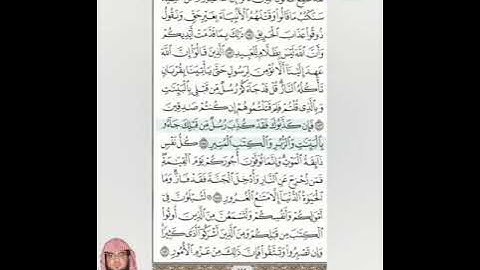 سَنَكْتُبُ مَا قَالُوا۟ وَقَتْلَهُمُ ٱلْأَنۢبِيَآءَ بِغَيْرِ حَقٍّ وَنَقُولُ
ذُوقُوا۟ عَذَابَ ٱلْحَرِيقِ ذَٰلِكَ بِمَا قَدَّمَتْ أَيْدِيكُمْ
وَأَنَّ ٱللَّهَ لَيْسَ بِظَلَّامٍ لِّلْعَبِيدِ ٱلَّذِينَ قَالُوٓا۟ إِنَّ ٱللَّهَ
عَهِدَ إِلَيْنَآ أَلَّا نُؤْمِنَ لِرَسُولٍ حَتَّىٰ يَأْتِيَنَا بِقُرْبَانٍ
تَأْكُلُهُ ٱلنَّارُ قُلْ قَدْ جَآءَكُمْ رُسُلٌ مِّن قَبْلِى بِٱلْبَيِّنَٰتِ
وَبِٱلَّذِى قُلْتُمْ فَلِمَ قَتَلْتُمُوهُمْ إِن كُنتُمْ صَٰدِقِينَ
فَإِن كَذَّبُوكَ فَقَدْ كُذِّبَ رُسُلٌ مِّن قَبْلِكَ جَآءُو
بِٱلْبَيِّنَٰتِ وَٱلزُّبُرِ وَٱلْكِتَٰبِ ٱلْمُنِيرِ كُلُّ نَفْسٍ
ذَآئِقَةُ ٱلْمَوْتِ وَإِنَّمَا تُوَفَّوْنَ أُجُورَكُمْ يَوْمَ ٱلْقِيَٰمَةِ
فَمَن زُحْزِحَ عَنِ ٱلنَّارِ وَأُدْخِلَ ٱلْجَنَّةَ فَقَدْ فَازَ وَمَا
ٱلْحَيَوٰةُ ٱلدُّنْيَآ إِلَّا مَتَٰعُ ٱلْغُرُورِ لَتُبْلَوُنَّ فِىٓ
أَمْوَٰلِكُمْ وَأَنفُسِكُمْ وَلَتَسْمَعُنَّ مِنَ ٱلَّذِينَ أُوتُوا۟
ٱلْكِتَٰبَ مِن قَبْلِكُمْ وَمِنَ ٱلَّذِينَ أَشْرَكُوٓا۟ أَذًى كَثِيرًا
وَإِن تَصْبِرُوا۟ وَتَتَّقُوا۟ فَإِنَّ ذَٰلِكَ مِنْ عَزْمِ ٱلْأُمُورِ